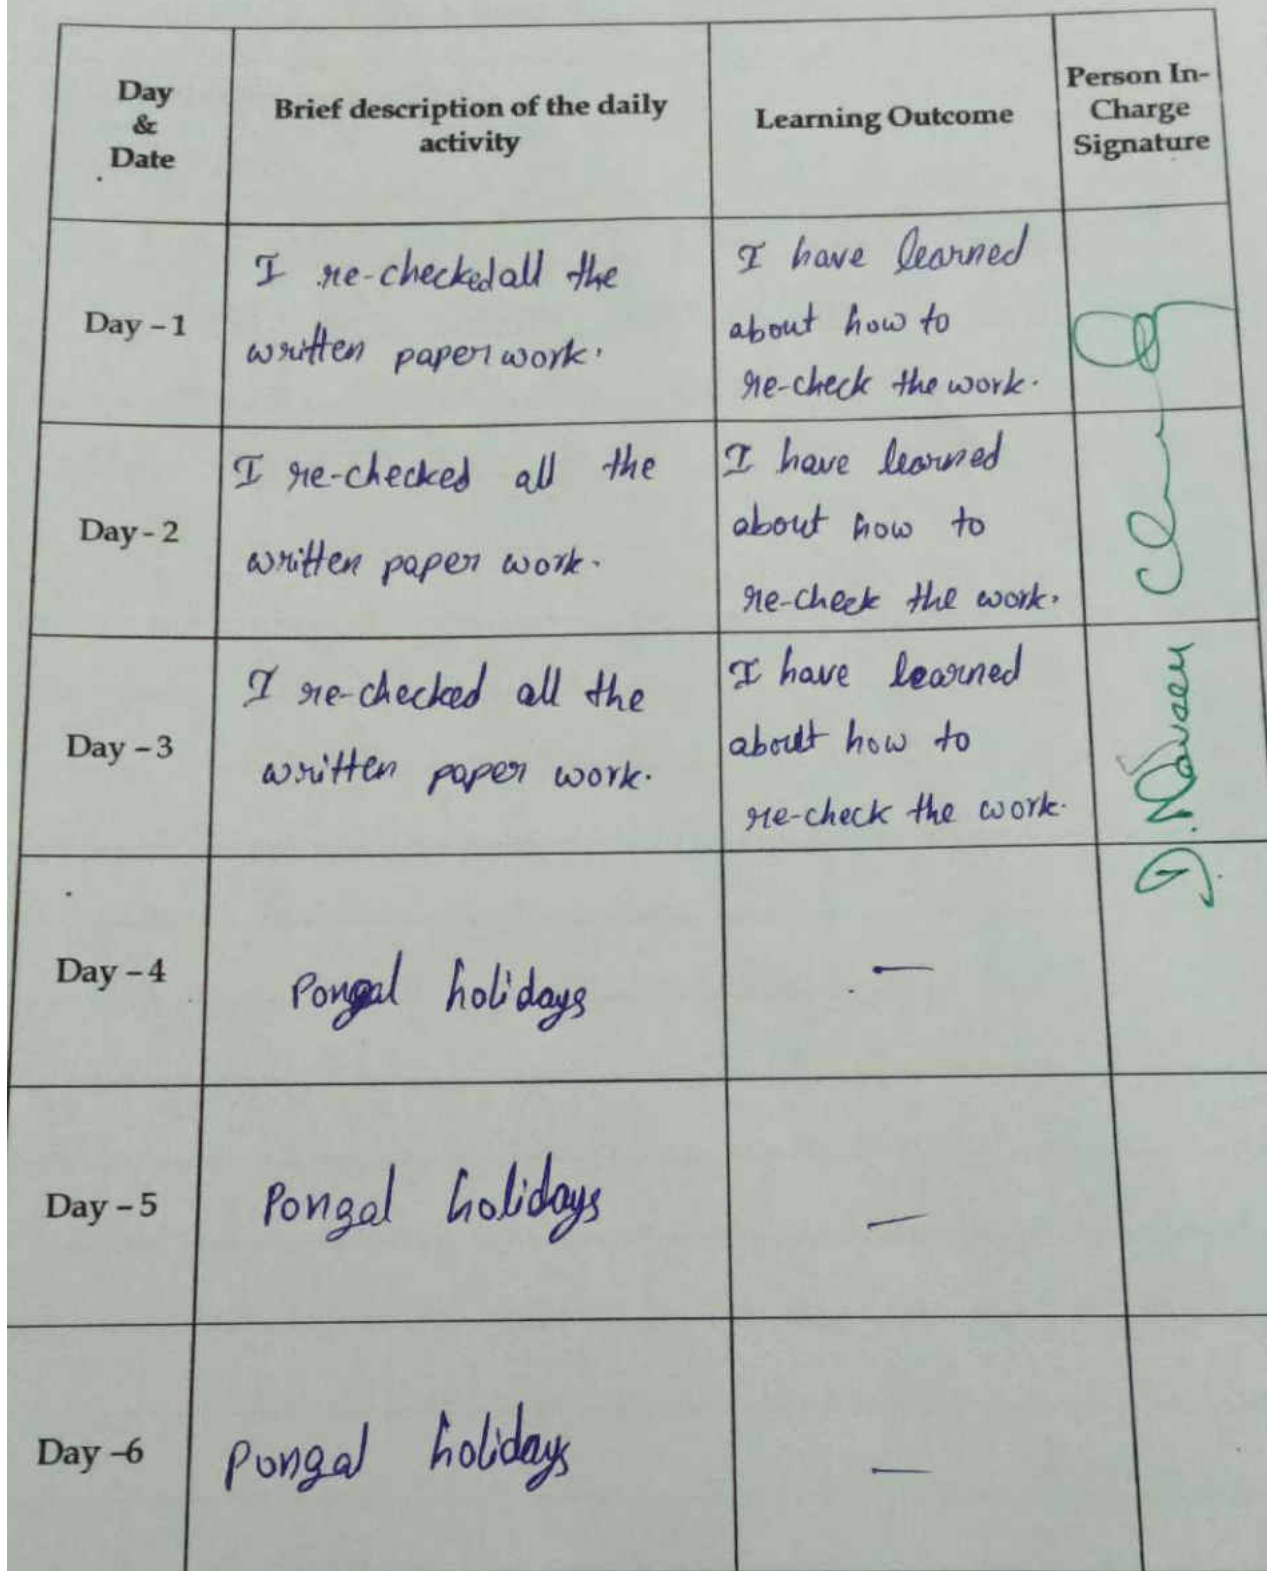 Day
&
Date
Brief description of the daily
activity
Learning Outcome
Person In-
Charge
Signature
Day – 1
I re-checked all the
written paper work.
I have learned
about how to
re-check the work.
Day - 2
I re-checked all the
written paper work.
I have learned
about how to
re-check the work.
Day – 3
I re-checked all the
written paper work.
I have learned
about how to
re-check the work.
Day – 4
Pongal holidays
—
Day – 5
Pongal holidays
—
Day –6
Pongal holidays
—